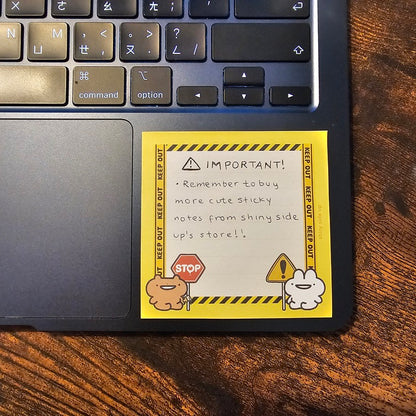 N
M
ㄩ
ㄝ
ㄡ
ㄥ
<
,
>
.
?
/
⌘
command
⌥
option
KEEP OUT
KEEP OUT
⚠ IMPORTANT!
• Remember to buy
more cute sticky
notes from shiny side
up's store!!
KEEP OUT
KEEP OUT
KEEP OUT
STOP
!